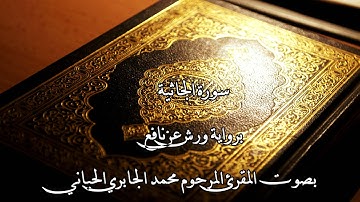 سورة الجاثية
برواية ورش عن نافع
بصوت المقرئ المرحوم محمد الجابري الحياني